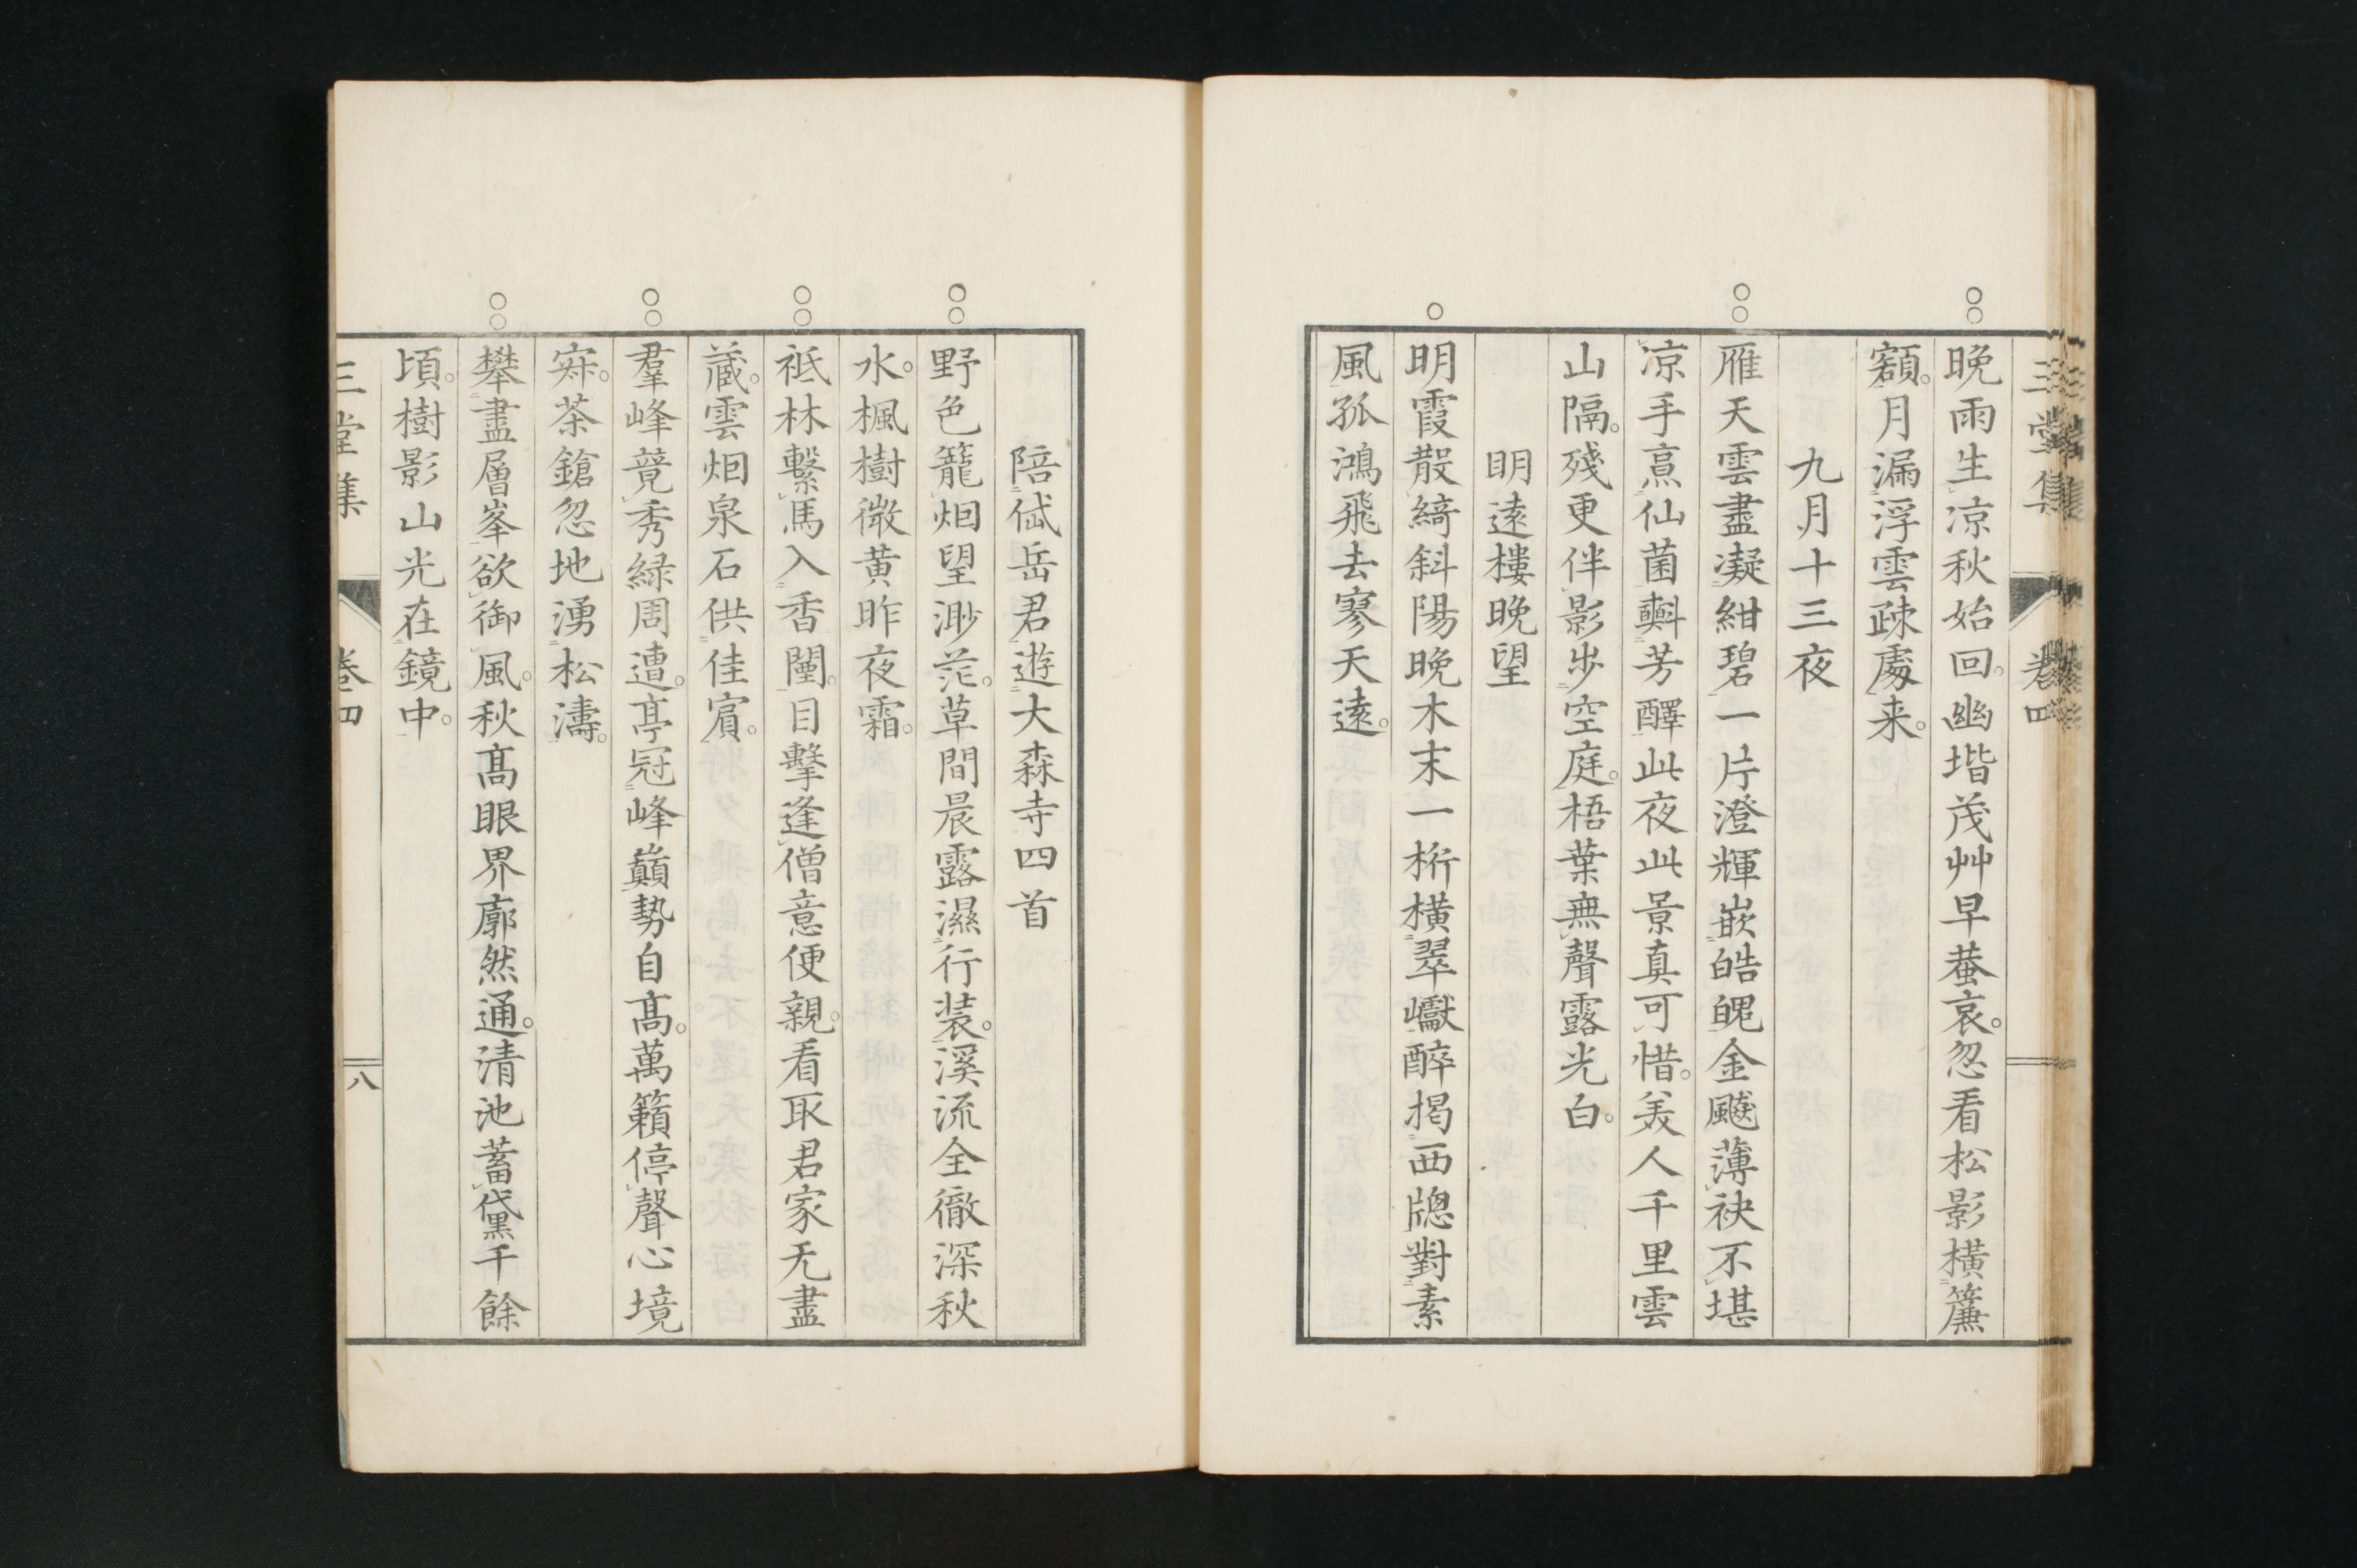 三堂集 卷四
晩雨生凉秋始回。幽堦茂艸早蛬哀。忽看松影橫簾
額。月漏浮雲疎處来。
九月十三夜
雁天雲盡凝紺碧一片澄輝嵌皓魄金飈薄袂不堪
凉手熹仙菌斟芳醳此夜此景真可惜。美人千里雲
山隔。殘更伴影步空庭。梧葉無聲露光白。
明遠樓晩望
明霞散綺斜陽晩木末一桁橫翠巘醉揭西牕對素
風孤鴻飛去寥天遠。
陪侙岳君遊大森寺四首
野色籠烟望渺茫。草間晨露濕行装。溪流全徹深秋
水。楓樹微黄昨夜霜。
祗林繫馬入香闉。目擊逢僧意便親。看取君家无盡
藏。雲烟泉石供佳賓。
羣峰競秀緑周遭。亭冠峰巔勢自髙。萬籟停聲心境
寂。茶鎗忽地湧松濤。
攀盡層峯欲御風。秋髙眼界廓然通。清池蓄黛千餘
頃。樹影山光在鏡中。
三堂集 卷四 八